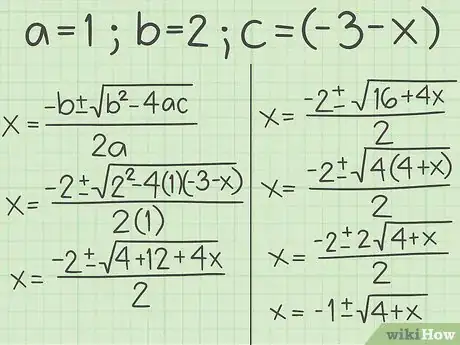 a=1 ; b=2 ; c=(-3-x)
x= -b±√b²-4ac / 2a
x= -2±√2²-4(1)(-3-x) / 2(1)
x= -2±√4+12+4x / 2
x= -2±√16+4x / 2
x= -2±√4(4+x) / 2
x= -2±2√4+x / 2
x= -1±√4+x
wikiHow